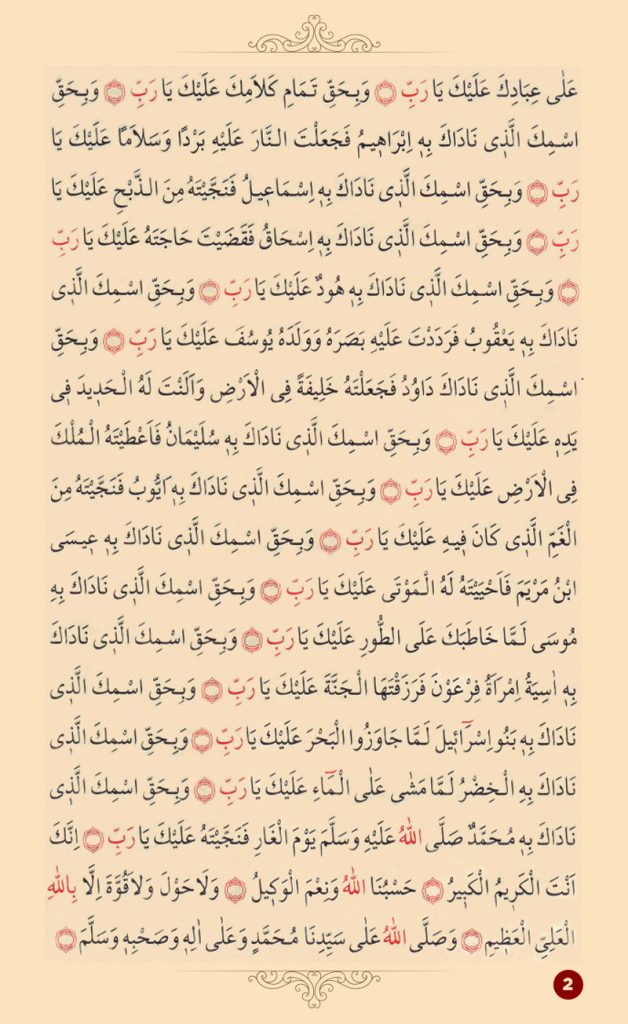 عَلٰى عِبَادِكَ عَلَيْكَ يَا رَبِّ ۝ وَبِحَقِّ تَمَامِ كَلَامِكَ عَلَيْكَ يَا رَبِّ ۝ وَبِحَقِّ
اسْمِكَ الَّذِي نَادَاكَ بِهِ اِبْرَاهِيمُ فَجَعَلْتَ النَّارَ عَلَيْهِ بَرْدًا وَسَلَامًا عَلَيْكَ يَا
رَبِّ ۝ وَبِحَقِّ اسْمِكَ الَّذِي نَادَاكَ بِهِ اِسْمَاعِيلُ فَنَجَّيْتَهُ مِنَ الذَّبْحِ عَلَيْكَ يَا
رَبِّ ۝ وَبِحَقِّ اسْمِكَ الَّذِي نَادَاكَ بِهِ اِسْحَاقُ فَقَضَيْتَ حَاجَتَهُ عَلَيْكَ يَا رَبِّ
۝ وَبِحَقِّ اسْمِكَ الَّذِي نَادَاكَ بِهِ هُودٌ عَلَيْكَ يَا رَبِّ ۝ وَبِحَقِّ اسْمِكَ الَّذِي
نَادَاكَ بِهِ يَعْقُوبُ فَرَدَدْتَ عَلَيْهِ بَصَرَهُ وَوَلَدَهُ يُوسُفَ عَلَيْكَ يَا رَبِّ ۝ وَبِحَقِّ
اسْمِكَ الَّذِي نَادَاكَ دَاوُدُ فَجَعَلْتَهُ خَلِيفَةً فِى الْاَرْضِ وَاَلَنْتَ لَهُ الْحَدِيدَ فِي
يَدِهِ عَلَيْكَ يَا رَبِّ ۝ وَبِحَقِّ اسْمِكَ الَّذِي نَادَاكَ بِهِ سُلَيْمَانُ فَاَعْطَيْتَهُ الْمُلْكَ
فِى الْاَرْضِ عَلَيْكَ يَا رَبِّ ۝ وَبِحَقِّ اسْمِكَ الَّذِي نَادَاكَ بِهِ اَيُّوبُ فَنَجَّيْتَهُ مِنَ
الْغَمِّ الَّذِي كَانَ فِيهِ عَلَيْكَ يَا رَبِّ ۝ وَبِحَقِّ اسْمِكَ الَّذِي نَادَاكَ بِهِ عِيسَى
ابْنُ مَرْيَمَ فَاَحْيَيْتَهُ لَهُ الْمَوْتَى عَلَيْكَ يَا رَبِّ ۝ وَبِحَقِّ اسْمِكَ الَّذِي نَادَاكَ بِهِ
مُوسَى لَمَّا خَاطَبَكَ عَلَى الطُّورِ عَلَيْكَ يَا رَبِّ ۝ وَبِحَقِّ اسْمِكَ الَّذِي نَادَاكَ
بِهِ اٰسِيَةُ اِمْرَاَةُ فِرْعَوْنَ فَرَزَقْتَهَا الْجَنَّةَ عَلَيْكَ يَا رَبِّ ۝ وَبِحَقِّ اسْمِكَ الَّذِي
نَادَاكَ بِهِ بَنُو اِسْرَآئِيلَ لَمَّا جَاوَزُوا الْبَحْرَ عَلَيْكَ يَا رَبِّ ۝ وَبِحَقِّ اسْمِكَ الَّذِي
نَادَاكَ بِهِ الْخِضْرُ لَمَّا مَشٰى عَلَى الْمَآءِ عَلَيْكَ يَا رَبِّ ۝ وَبِحَقِّ اسْمِكَ الَّذِي
نَادَاكَ بِهِ مُحَمَّدٌ صَلَّى اللّٰهُ عَلَيْهِ وَسَلَّمَ يَوْمَ الْغَارِ فَنَجَّيْتَهُ عَلَيْكَ يَا رَبِّ ۝ اِنَّكَ
اَنْتَ الْكَرِيمُ الْكَبِيرُ ۝ حَسْبُنَا اللّٰهُ وَنِعْمَ الْوَكِيلُ ۝ وَلَا حَوْلَ وَلَا قُوَّةَ اِلَّا بِاللّٰهِ
الْعَلِيِّ الْعَظِيمِ ۝ وَصَلَّى اللّٰهُ عَلٰى سَيِّدِنَا مُحَمَّدٍ وَعَلٰى اٰلِهِ وَصَحْبِهِ وَسَلَّمَ ۝
2